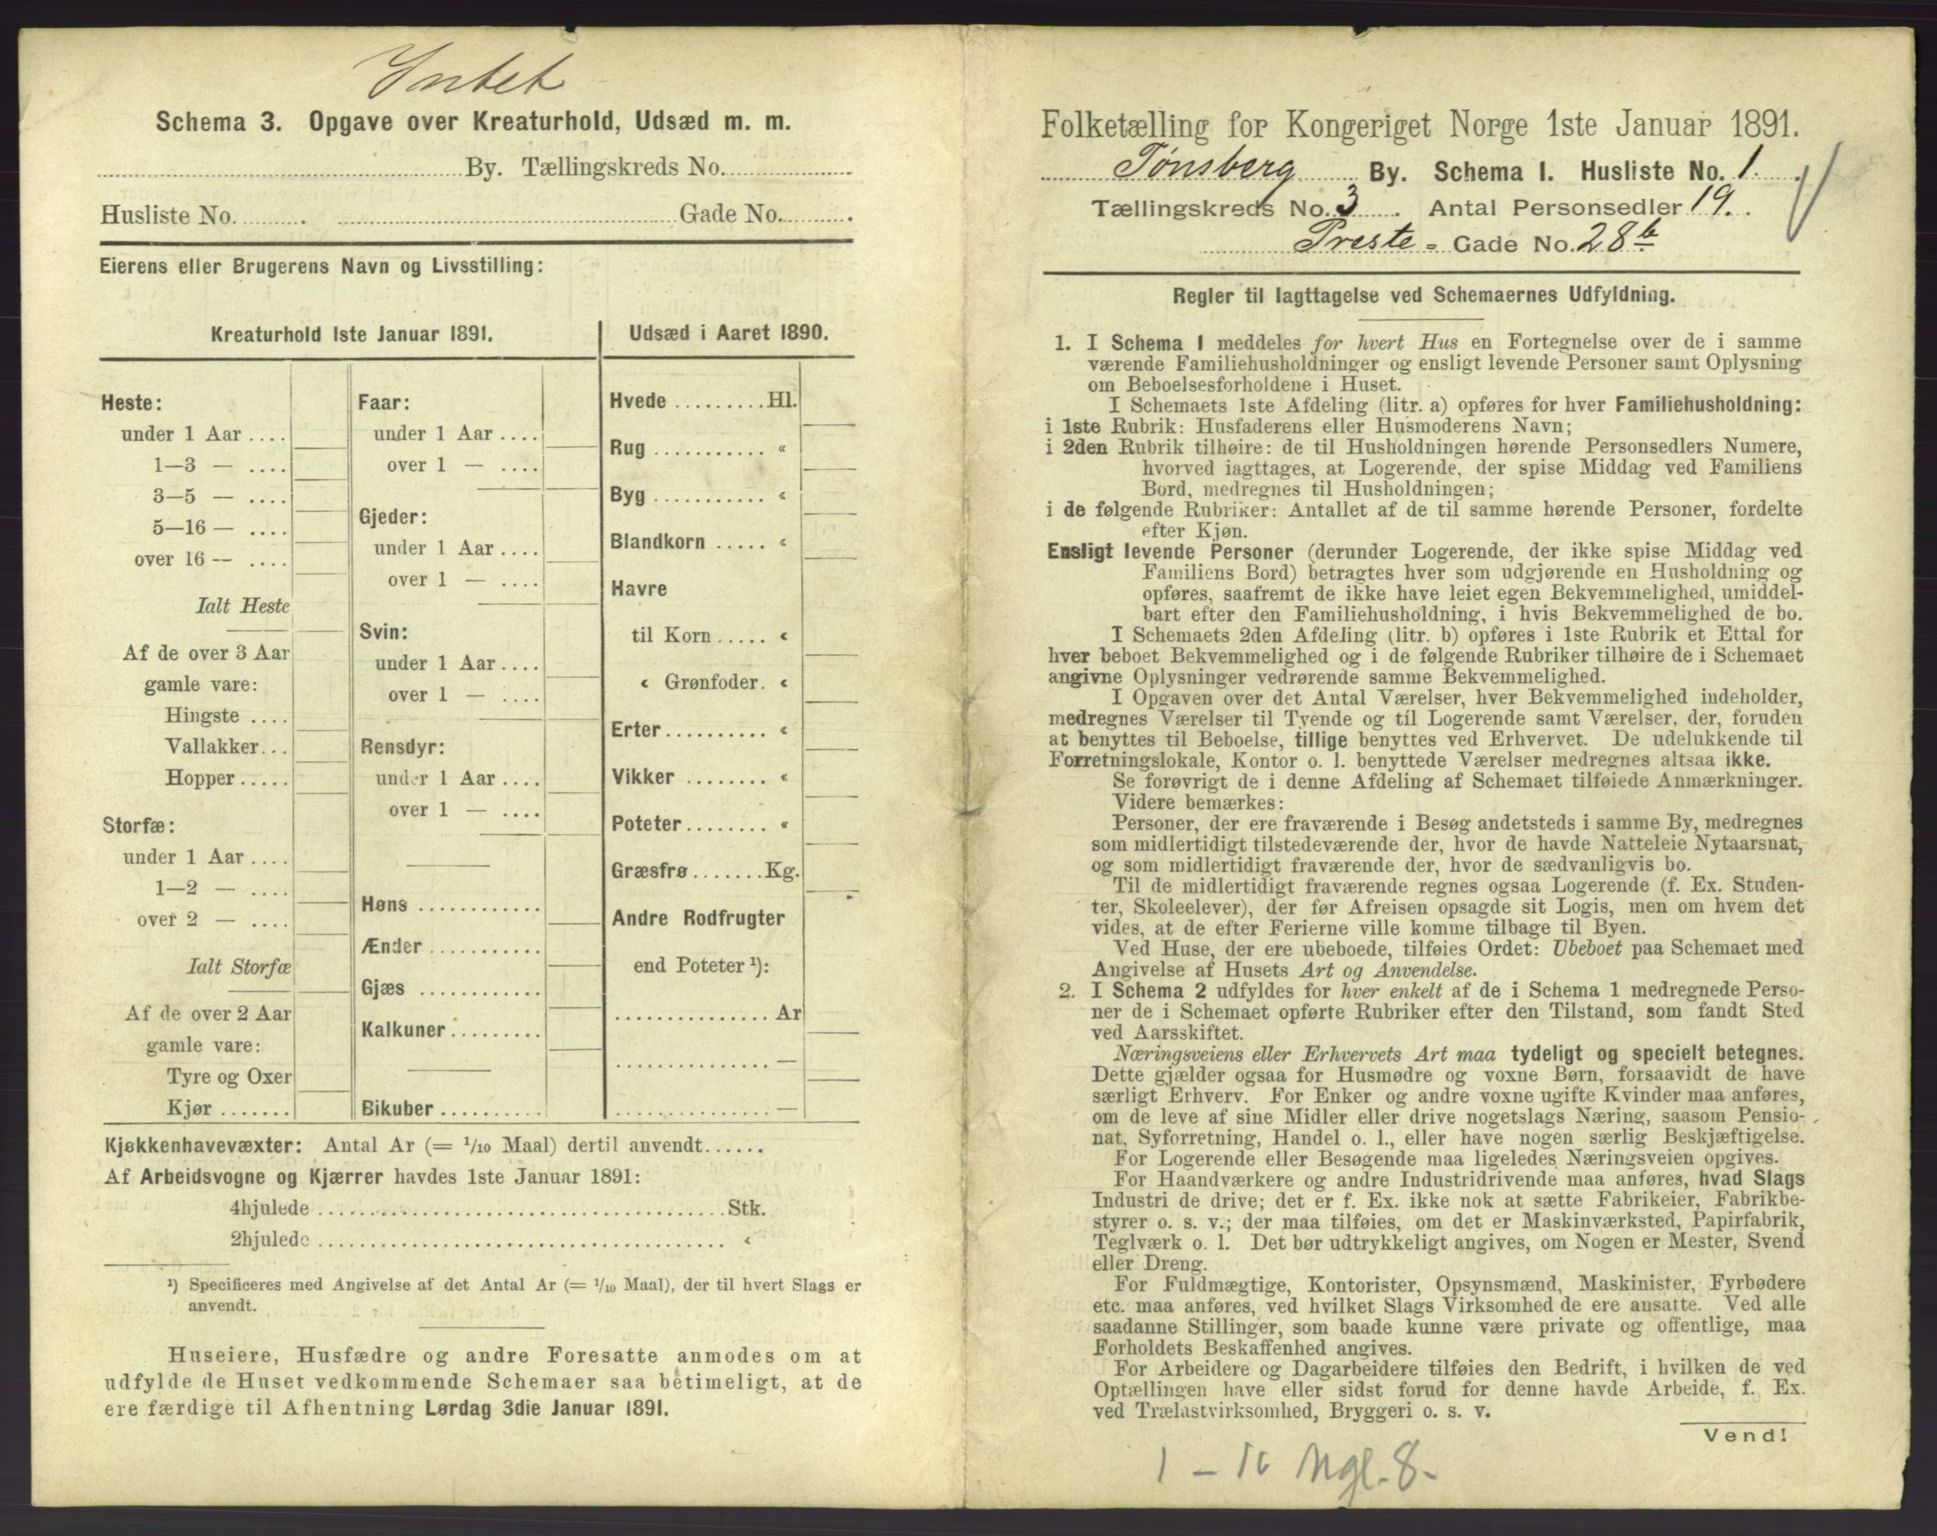 Intet
Schema 3. Opgave over Kreaturhold, Udsæd m. m.
By. Tællingskreds No.
Husliste No. Gade No.
Eierens eller Brugerens Navn og Livsstilling:
Kreaturhold 1ste Januar 1891.
Heste:
under 1 Aar ....
1—3 — ....
3—5 — ....
5—16 — ....
over 16 — ....
Ialt Heste
Af de over 3 Aar
gamle vare:
Hingste ....
Vallakker...
Hopper .....
Storfæ:
under 1 Aar ....
1—2 — ....
over 2 — ....
Ialt Storfæ
Af de over 2 Aar
gamle vare:
Tyre og Oxer
Kjør .......
Faar:
under 1 Aar ....
over 1 — ....
Gjeder:
under 1 Aar ....
over 1 — ....
Svin:
under 1 Aar ....
over 1 — ....
Rensdyr:
under 1 Aar ....
over 1 — ....
Høns ............
Ænder ............
Gjæs ............
Kalkuner.........
Bikuber ..........
Udsæd i Aaret 1890.
Hvede .........Hl.
Rug ........... «
Byg ........... «
Blandkorn ..... «
Havre
til Korn ..... «
« Grønfoder. «
Erter.......... «
Vikker ........ «
Poteter ........ «
Græsfrø .......Kg.
Andre Rodfrugter
end Poteter ¹):
............... Ar
............... —
............... —
Kjøkkenhavevæxter: Antal Ar (= 1/10 Maal) dertil anvendt......
Af Arbeidsvogne og Kjærrer havdes 1ste Januar 1891:
4hjulede ........................................Stk.
2hjulede ........................................ «
¹) Specificeres med Angivelse af det Antal Ar (= 1/10 Maal), der til hvert Slags er
anvendt.
Huseiere, Husfædre og andre Foresatte anmodes om at
udfylde de Huset vedkommende Schemaer saa betimeligt, at de
ere færdige til Afhentning Lørdag 3die Januar 1891.
Folketælling for Kongeriget Norge 1ste Januar 1891.
Tønsberg By. Schema I. Husliste No. 1.
Tællingskreds No. 3. Antal Personsedler 19.
Preste- Gade No. 28 b
Regler til Iagttagelse ved Schemaernes Udfyldning.
1. I Schema I meddeles for hvert Hus en Fortegnelse over de i samme
værende Familiehusholdninger og ensligt levende Personer samt Oplysning
om Beboelsesforholdene i Huset.
I Schemaets 1ste Afdeling (litr. a) opføres for hver Familiehusholdning:
i 1ste Rubrik: Husfaderens eller Husmoderens Navn;
i 2den Rubrik tilhøire: de til Husholdningen hørende Personsedlers Numere,
hvorved iagttages, at Logerende, der spise Middag ved Familiens
Bord, medregnes til Husholdningen;
i de følgende Rubriker: Antallet af de til samme hørende Personer, fordelte
efter Kjøn.
Ensligt levende Personer (derunder Logerende, der ikke spise Middag ved
Familiens Bord) betragtes hver som udgjørende en Husholdning og
opføres, saafremt de ikke have leiet egen Bekvemmelighed, umiddel-
bart efter den Familiehusholdning, i hvis Bekvemmelighed de bo.
I Schemaets 2den Afdeling (litr. b) opføres i 1ste Rubrik et Ettal for
hver beboet Bekvemmelighed og i de følgende Rubriker tilhøire de i Schemaet
angivne Oplysninger vedrørende samme Bekvemmelighed.
I Opgaven over det Antal Værelser, hver Bekvemmelighed indeholder,
medregnes Værelser til Tyende og til Logerende samt Værelser, der, foruden
at benyttes til Beboelse, tillige benyttes ved Erhvervet. De udelukkende til
Forretningslokale, Kontor o. l. benyttede Værelser medregnes altsaa ikke.
Se forøvrigt de i denne Afdeling af Schemaet tilføiede Anmærkninger.
Videre bemærkes:
Personer, der ere fraværende i Besøg andetsteds i samme By, medregnes
som midlertidigt tilstedeværende der, hvor de havde Natteleie Nytaarsnat,
og som midlertidigt fraværende der, hvor de sædvanligvis bo.
Til de midlertidigt fraværende regnes ogsaa Logerende (f. Ex. Studen-
ter, Skoleelever), der før Afreisen opsagde sit Logis, men om hvem det
vides, at de efter Ferierne ville komme tilbage til Byen.
Ved Huse, der ere ubeboede, tilføies Ordet: Ubeboet paa Schemaet med
Angivelse af Husets Art og Anvendelse.
2. I Schema 2 udfyldes for hver enkelt af de i Schema 1 medregnede Perso-
ner de i Schemaet opførte Rubriker efter den Tilstand, som fandt Sted
ved Aarsskiftet.
Næringsveiens eller Erhvervets Art maa tydeligt og specielt betegnes.
Dette gjælder ogsaa for Husmødre og voxne Børn, forsaavidt de have
særligt Erhverv. For Enker og andre voxne ugifte Kvinder maa anføres,
om de leve af sine Midler eller drive nogetslags Næring, saasom Pensio-
nat, Syforretning, Handel o. l., eller have nogen særlig Beskjæftigelse.
For Logerende eller Besøgende maa ligeledes Næringsveien opgives.
For Haandværkere og andre Industridrivende maa anføres, hvad Slags
Industri de drive; det er f. Ex. ikke nok at sætte Fabrikeier, Fabrikbe-
styrer o. s. v.; der maa tilføies, om det er Maskinværksted, Papirfabrik,
Teglværk o. l. Det bør udtrykkeligt angives, om Nogen er Mester, Svend
eller Dreng.
For Fuldmægtige, Kontorister, Opsynsmænd, Maskinister, Fyrbødere
etc. maa anføres, ved hvilket Slags Virksomhed de ere ansatte. Ved alle
saadanne Stillinger, som baade kunne være private og offentlige, maa
Forholdets Beskaffenhed angives.
For Arbeidere og Dagarbeidere tilføies den Bedrift, i hvilken de ved
Optællingen have eller sidst forud for denne havde Arbeide, f. Ex.
ved Trælastvirksomhed, Bryggeri o. s. v.
Vend!
1 – 10 Mgl. 8-